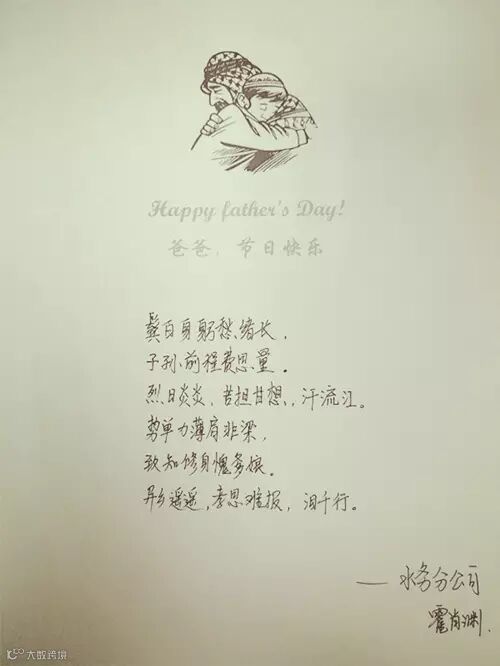 Happy father's Day!
爸爸，节日快乐
鬓白身躬愁绪长，
子孙前程费思量。
烈日炎炎，苦担甘想，汗流江。
势单力薄肩非梁，
致知修身愧爹嫔。
异乡遥遥，孝思难报，泪千行。
——水务分公司
霍肖渊.
大数跨境